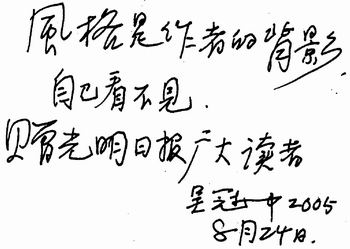 風格是作者的背影
自己看不见.
贝曾光明日报广大读者
吴冠中2005
8月24日.